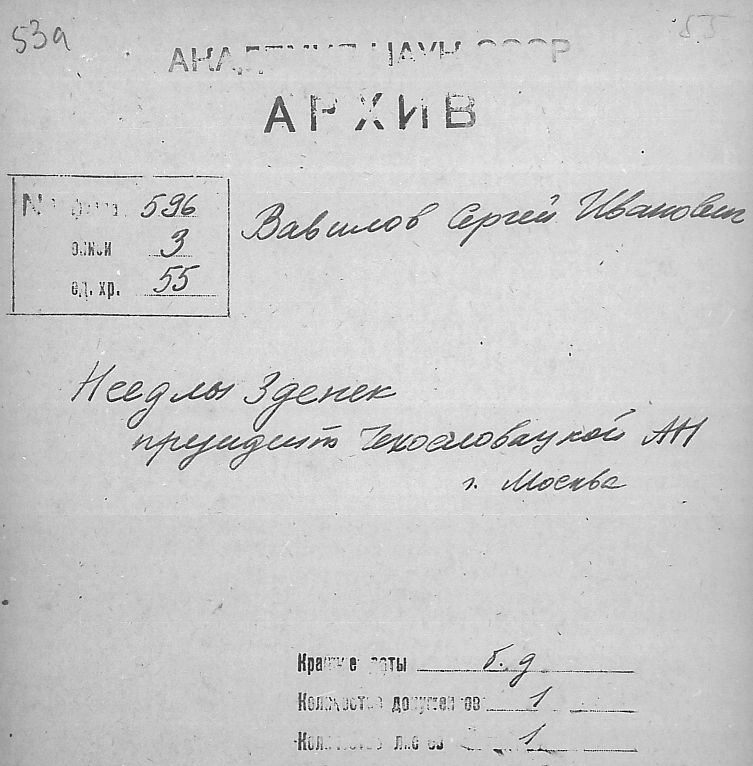 53а
55
АКАДЕМИЯ НАУК СССР
АРХИВ
№ фонда 596
описи 3
ед. хр. 55
Вавилов Сергей Иванович
Неедлы Зденек
президент Чехословацкой АН
г. Москва
Крайние даты б. д
Количество документов 1
Количество листов 1